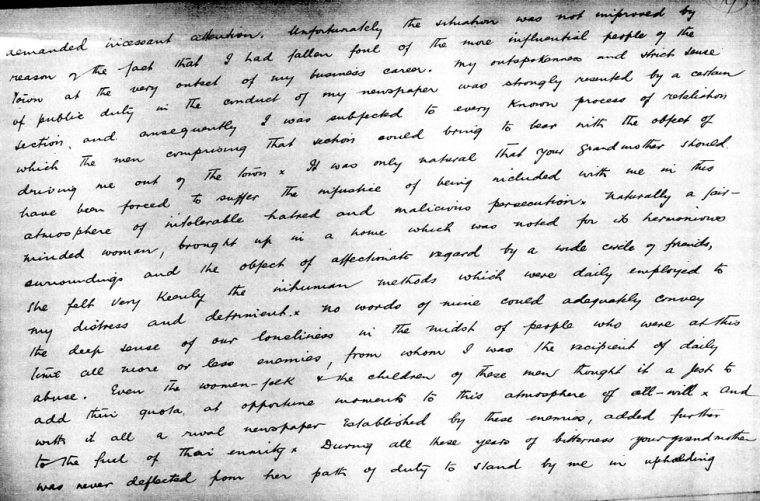 demanded incessant attention. Unfortunately the situation was not improved by
reason of the fact that I had fallen foul of the more influential people of the
Town at the very outset of my business career. My outspokenness and strict sense
of public duty in the conduct of my newspaper was strongly resented by a certain
section, and consequently I was subjected to every known process of retaliation
which the men comprising that section could bring to bear with the object of
driving me out of the town x It was only natural that your grandmother should
have been forced to suffer the injustice of being included with me in this
atmosphere of intolerable hatred and malicious persecution x Naturally a fair-
minded woman, brought up in a home which was noted for its harmonious
surroundings and the object of affectionate regard by a wide circle of friends,
she felt very keenly the inhuman methods which were daily employed to
my distress and detriment. x No words of mine could adequately convey
the deep sense of our loneliness in the midst of people who were at this
time all more or less enemies, from whom I was the recipient of daily
abuse. Even the women-folk & the children of these men thought it a jest to
add their quota at opportune moments to this atmosphere of ill-will x and
with it all a rival newspaper established by these enemies, added further
to the fuel of their enmity x During all these years of bitterness your grandmother
was never deflected from her path of duty to stand by me in upholding